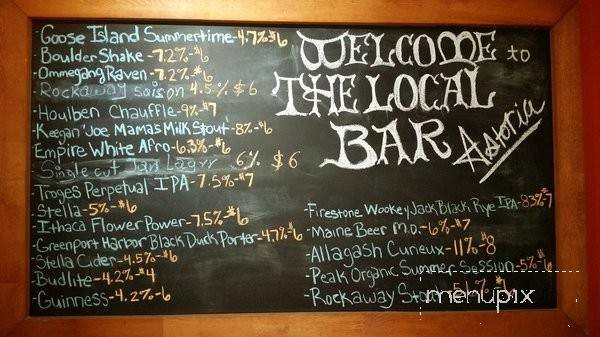 -Goose Island Summertime-4.7% $6
-Boulder Shake -7.2%-$6
-Ommegang Raven -7.2%-$6
-Rockaway Saison 4.5% $6
-Houlben Chauffle-9%-$7
-Keegan 'Joe Mamas Milk Stout'-8%-$6
-Empire White Afro-6.3%-$6
-Single cut Jan Lagrr 6% $6
-Troges Perpetual IPA-7.5%-$7
-Stella-5%-$6
-Ithaca Flower Power-7.5%-$6
-Greenport Harbor Black Duck Porter-4.7%-$6
-Stella Cider-4.5%-$6
-Budlite-4.2%-$4
-Guinness-4.2%-6
Welcome to
The Local
Bar Astoria
-Firestone Wookey Jack Black Rye IPA-8.3%-$7
-Maine Beer M.O.-6%-$7
-Allagash Curieux-11%-$8
-Peak Organic Summer Session-5%-$6
-Rockaway
menupix